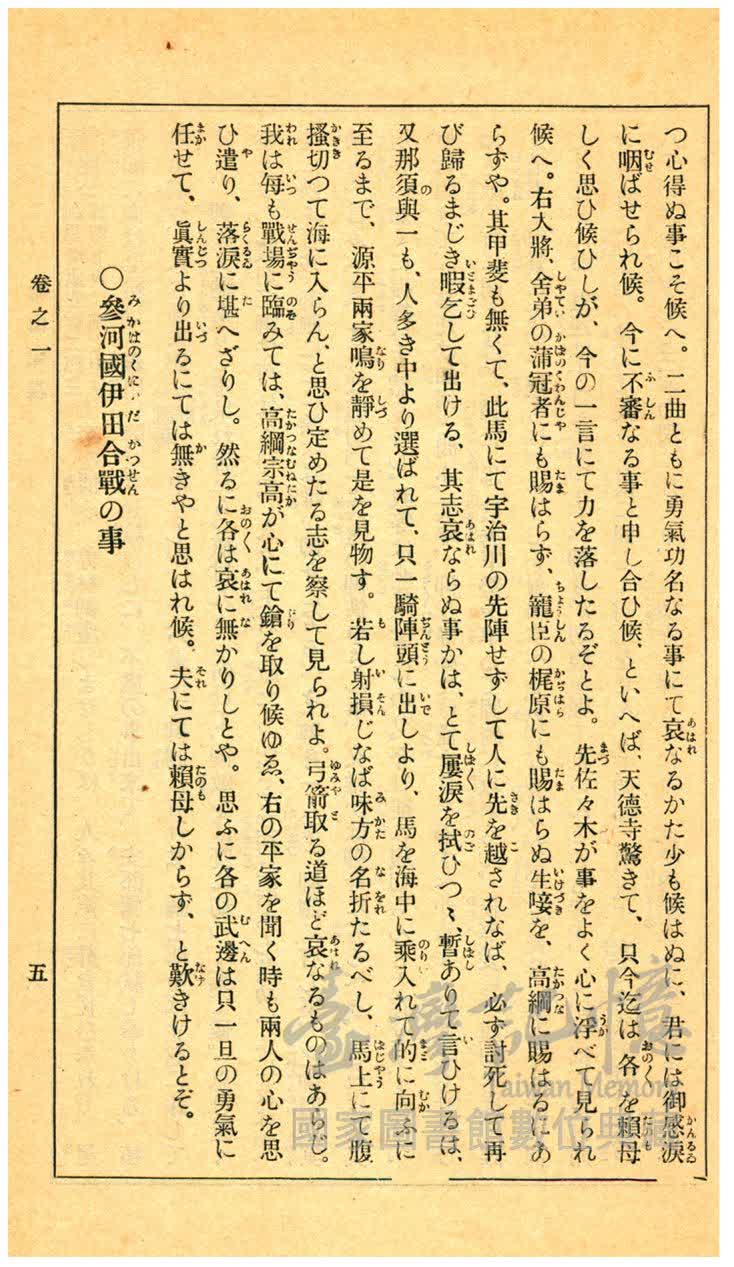 つ心得ぬ事こそ候へ。二曲ともに勇氣功名なる事にて哀なるかた少も候はぬに、君には御感淚
に咽ばせられ候。今に不審なる事と申し合ひ候、といへば、天德寺驚きて、只今迄は各〻を賴母
しく思ひ候ひしが、今の一言にて力を落したるぞとよ。先佐々木が事をよく心に浮べて見られ
候へ。右大將、舍弟の蒲冠者にも賜はらず、寵臣の梶原にも賜はらぬ生唼を、高綱に賜はるにあ
らずや。其甲斐も無くて、此馬にて宇治川の先陣せずして人に先を越されなば、必ず討死して再
び歸るまじき暇乞して出ける、其志哀ならぬ事かは、とて屢淚を拭ひつゝ、暫ありて言ひけるは、
又那須與一も、人多き中より選ばれて、只一騎陣頭に出しより、馬を海中に乘入れて的に向ふに
至るまで、源平兩家鳴を靜めて是を見物す。若し射損じなば味方の名折たるべし、馬上にて腹
搔切つて海に入らん、と思ひ定めたる志を察して見られよ。弓箭取る道ほど哀なるものはあらじ。
我は每も戰場に臨みては、高綱宗高が心にて鎗を取り候ゆゑ、右の平家を聞く時も兩人の心を思
ひ遣り、落淚に堪へざりし。然るに各は哀に無かりしとや。思ふに各の武邊は只一旦の勇氣に
任せて、眞實より出るにては無きやと思はれ候。夫にては賴母しからず、と歎きけるとぞ。
〇參河國伊田合戰の事
卷之一
五
臺灣記憶
Taiwan Memory
國家圖書館數位典藏